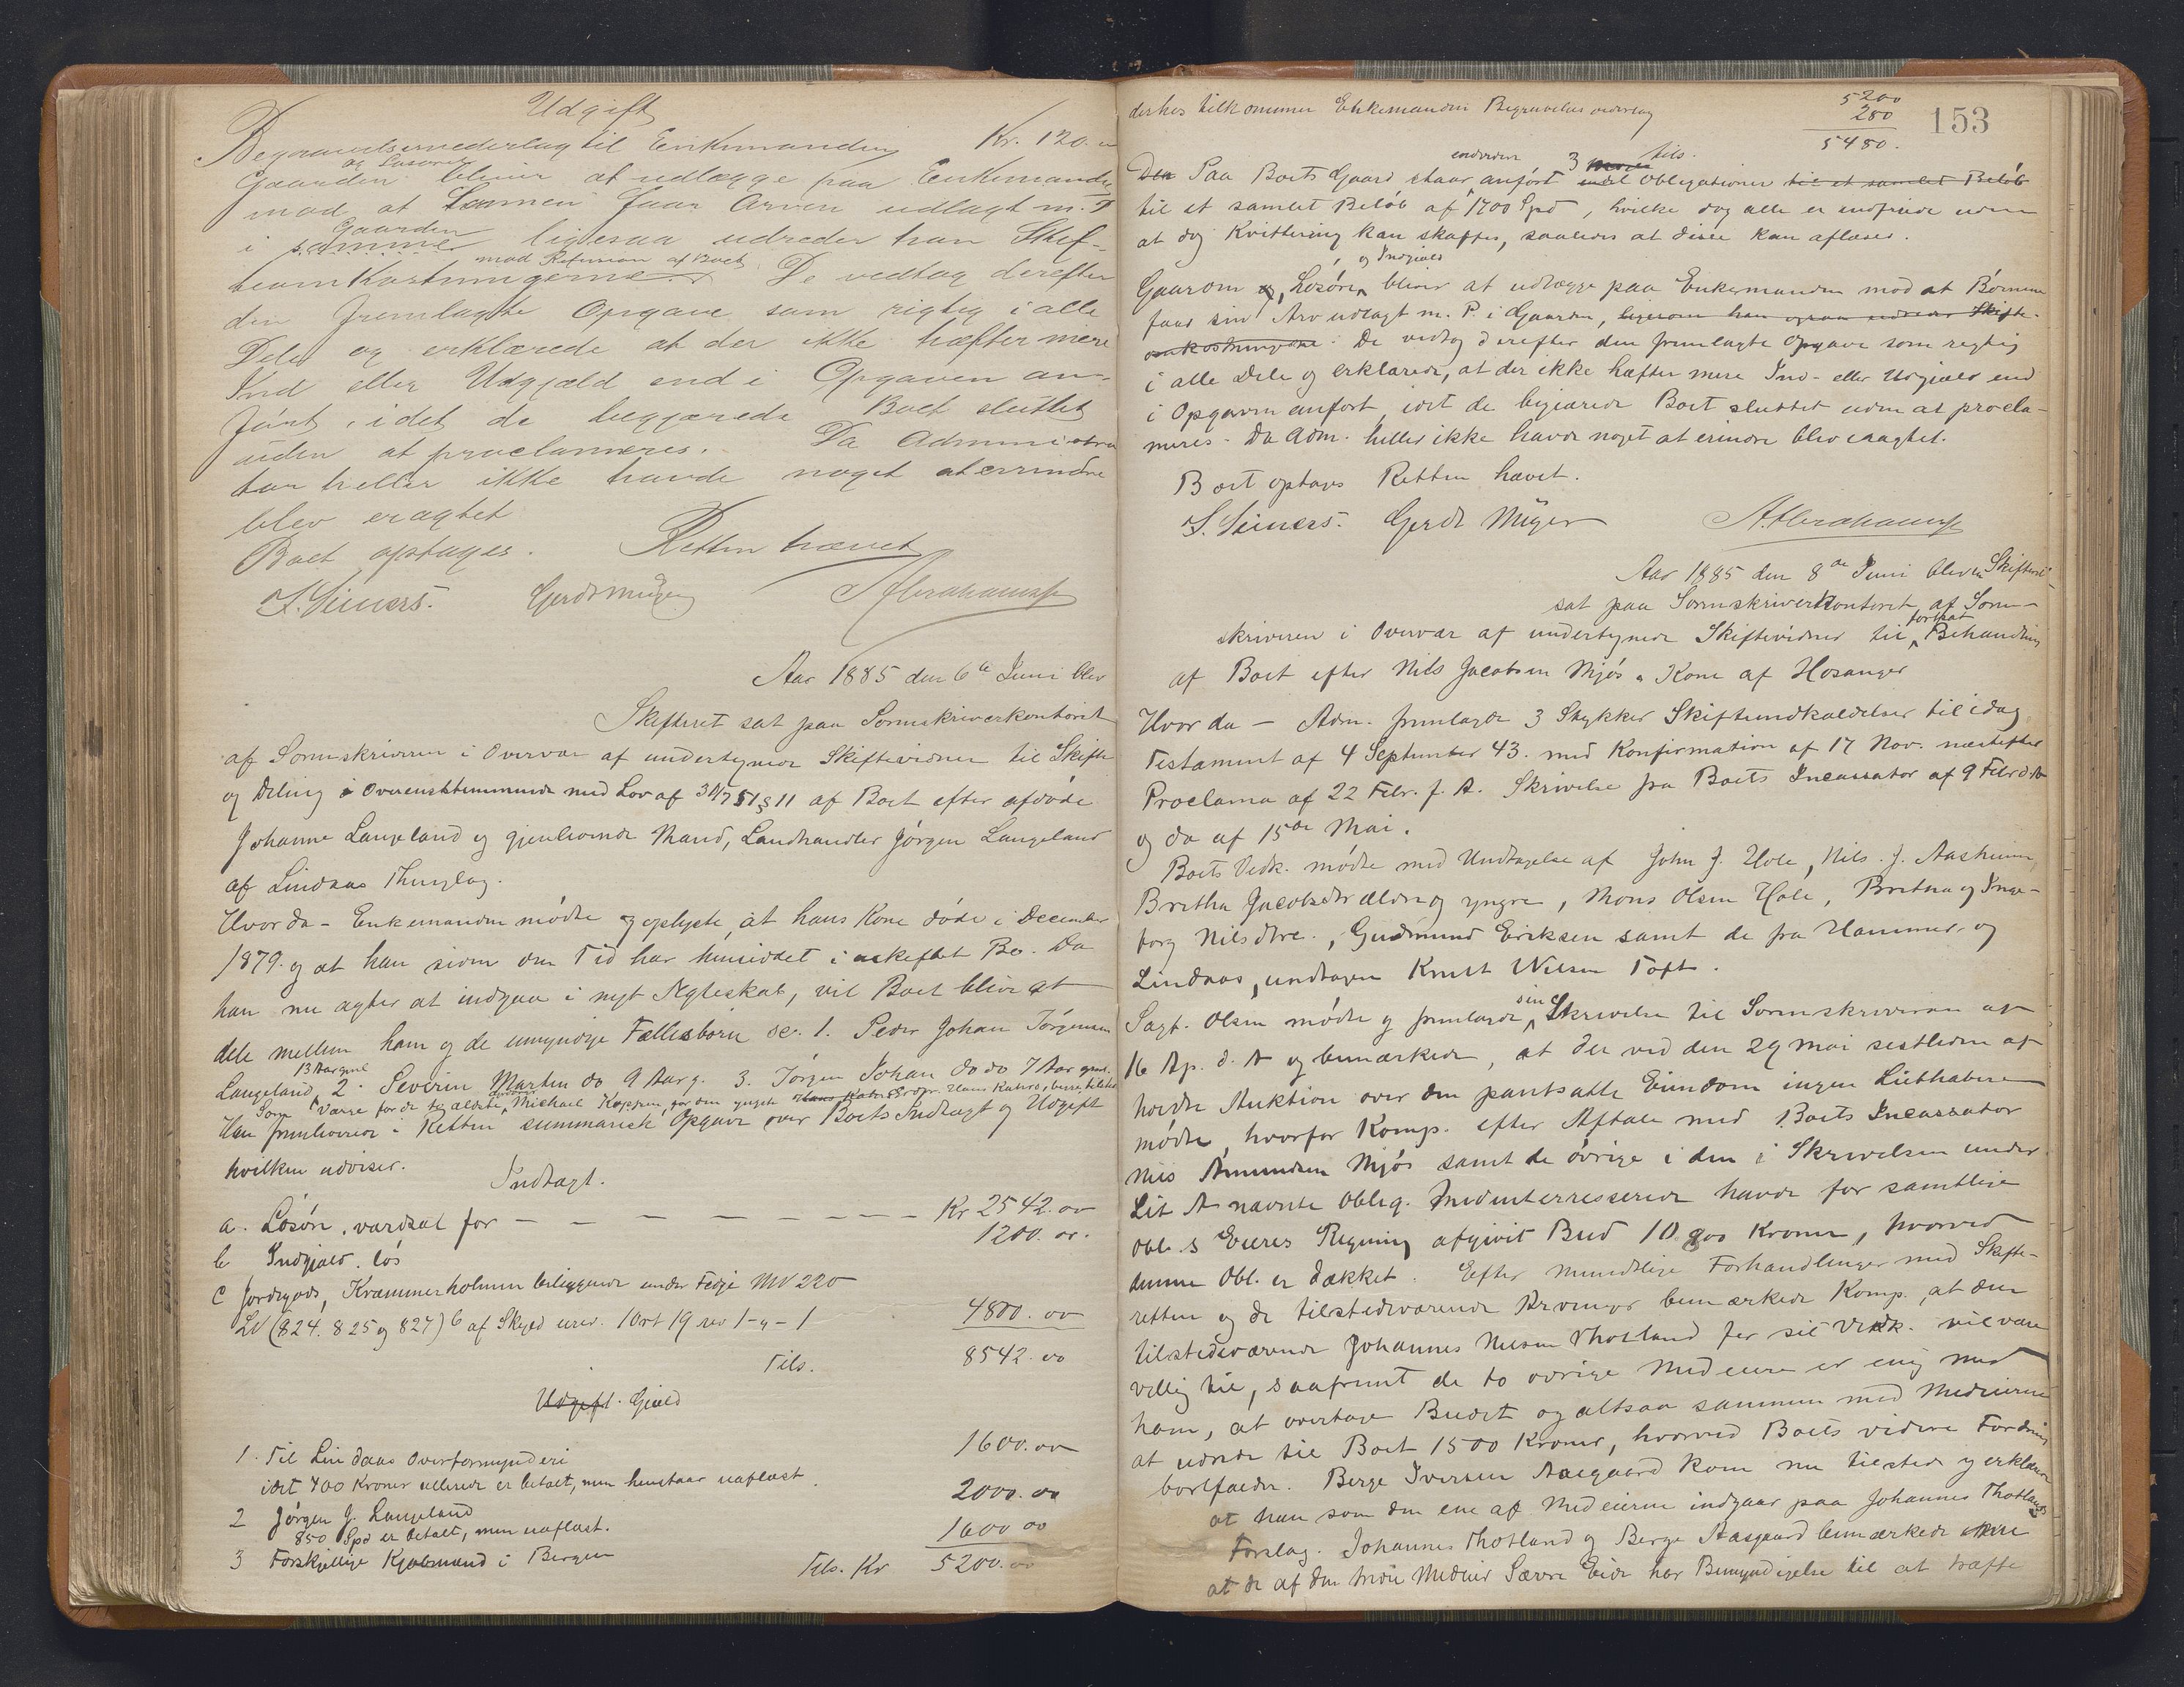 Udgift
Begravelsesvederlag til Enkemanden Kr. 120. „
og Løsøret
Gaarden bliver at udlægge paa Enkemanden
mod at Sønnen faar Arven udlagt m. P
Gaarden
i samme ligesaa udreder han Skif-
mod Refusion af Boet
teomkostningerne. De vedtog derefter
den fremlagte Opgave som rigtig i alle
Dele og erklærede at der ikke hæfter mere
Ind eller Udgjæld end i Opgaven an-
ført, idet de begjærede Boet sluttet
uden at proclameres. Da Administra
tor heller ikke havde noget at errindre
blev eragtet
Boet optages. Retten hævet
S. Siuers. Gerdt Meyer A. Abrahamsen
Aar 1885 den 6te Juni blev
Skifteret sat paa Sorenskriverkontoret
af Sorenskriveren i Overvær af undertegnede Skiftevidner til Skifte
og Deling i Overensstemmende med Lov af 30/7 51 § 11 af Boet efter afdøde
Johanne Langeland og gjenlevende Mand, Landhandler Jørgen Langeland
af Lindaas Thinglag.
Hvor da - Enkemanden mødte og oplyste, at hans Kone døde i December
1879. og at han siden den Tid har hensiddet i uskiftet Bo. Da
han nu agter at indgaa i nyt Ægteskab, vil Boet blive at
dele mellem ham og de umyndige Fællesbørn se. 1. Peder Johan Jørgensen
13 Aar gml
Langeland, 2. Severin Martin do 9 Aar g. 3. Jørgen Johan do do 7 Aar gml.
Som Værge for de to ældste Michael Koppen, for den yngste Hans
Han fremleverede i Retten summarisk Opgave over Boets Indtægt og Udgift
hvilken udviser.
Indtægt.
a. Løsøre, værdsat for — — — — — — — Kr 2542. 00
b Indgjæld. løs 1200. 00.
c Jordegods, Kræmmerholmen beliggende under Fedje MN 220
LN (824. 825 og 827) b af Skyld urev. 1 Ort 19 rev 1-4-1 4800. 00
Tils. 8542. 00
Udgift. Gjæld
1. Til Lindaas Overformynderi 1600. 00
idet 400 Kroner allerede er betalt, men henstaar uaflæst.
2 Jørgen J. Langeland 2000. 00
850 Spd er betalt, men uaflæst.
3 Forskjellige Kjøbmænd i Bergen 1600 00
Tils. Kr 5200. 00
153
derhos tilkommer Enkemanden Begravelses vederlag 5200
280
5480.
endvidere 3 tils.
Den Paa Boets Gaard staar anført Obligationer til et samlet Beløb
til et samlet Beløb af 1700 Spd, hvilke dog alle er indfriede uden
at dog Kvittering kan skaffes, saaledes at disse kan aflæses.
og Indgjæld
Gaarden og Løsøre, bliver at udlægge paa Enkemanden mod at Børnene
faar sin Arv udlagt m. P. i Gaarden, ligesom han ogsaa udreder Skifte-
omkostningerne. De vedtog derefter den fremlagte Opgave som rigtig
i alle Dele og erklærede, at der ikke hæfter mere Ind- eller Udgjæld end
i Opgaven anført, idet de begjærede Boet sluttet uden at procla-
meres. Da Adm. heller ikke havde noget at erindre blev eragtet.
Boet optages Retten hævet.
S. Siuers. Gerdt Meyer A. Abrahamsen
Aar 1885 den 8de Juni blev Skifteret
sat paa Sorenskriverkontoret af Soren-
fortsat
skriveren i Overvær af undertegnede Skiftevidner til Behandling
af Boet efter Nils Jacobsen Mjøs & Kone af Hosanger
Hvor da - Adm. fremlagde 3 Stykker Skifteindkaldelser til idag
Testament af 4 September 43. med Konfirmation af 17 Nov. næstefter
Proclama af 22 Febr. f. A. Skrivelse fra Boets Incassator af 9 Febr. d A
og do af 15de Mai.
Boets Vedk. mødte med Undtagelse af John J. Hole, Nils J. Aasheim,
Brithe Jacobsdtr ældre og yngre, Mons Olsen Hole, Brithe og Inge-
borg Nilsdtre., Gudmund Eriksen samt de fra Hammer og
Lindaas, undtagen Knut Nilsen Toft.
sin
Sagf. Olsen mødte og fremlagde Skrivelse til Sorenskriveren af
16 Ap. d. A og bemærkede, at der ved den 29 Mai sidstleden af
holdte Auktion over den pantsatte Eiendom ingen Liebhabere
mødte, hvorfor Komp. efter Aftale med Boets Incassator
Nils Amundsen Mjøs samt de øvrige i den i Skrivelsen under
Lit A nævnte Oblig. medinterresserede havde for samtlige
Obl. s Eieres Regning afgivit Bud 10 900 Kroner, hvorved
denne Obl. er dækket. Efter mundtlige Forhandlinger med Skifte-
retten og de tilstedeværende Arvinger bemærkede Komp., at den
tilstedeværende Johannes Nilsen Thotland for sit Vedk. vil være
villig til, saafremt de to øvrige Medeiere er enig med
ham, at overtage Budet og altsaa sammen med Medeierne
at udrede til Boet 1500 Kroner, hvorved Boets videre Fordring
bortfalder. Berge Iversen Aasgaard kom nu tilstede og erklærede
at han som den ene af Medeierne indgaar paa Johannes Thotlands
Forslag. Johannes Thotland og Berge Aasgaard bemærkede
at de af den tredie Medeier Særre Eide har Bemyndigelse til at træffe